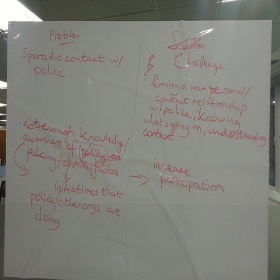 Problem
Sporadic contact w/
police
• not enough knowledge/
awareness of
policing/criminal justice
↓
initiatives that
police/other orgs are
doing
Challenge
forming a more personal
contact relationship
w/ police, knowing
what's going on, understanding
context
→ increase
participation